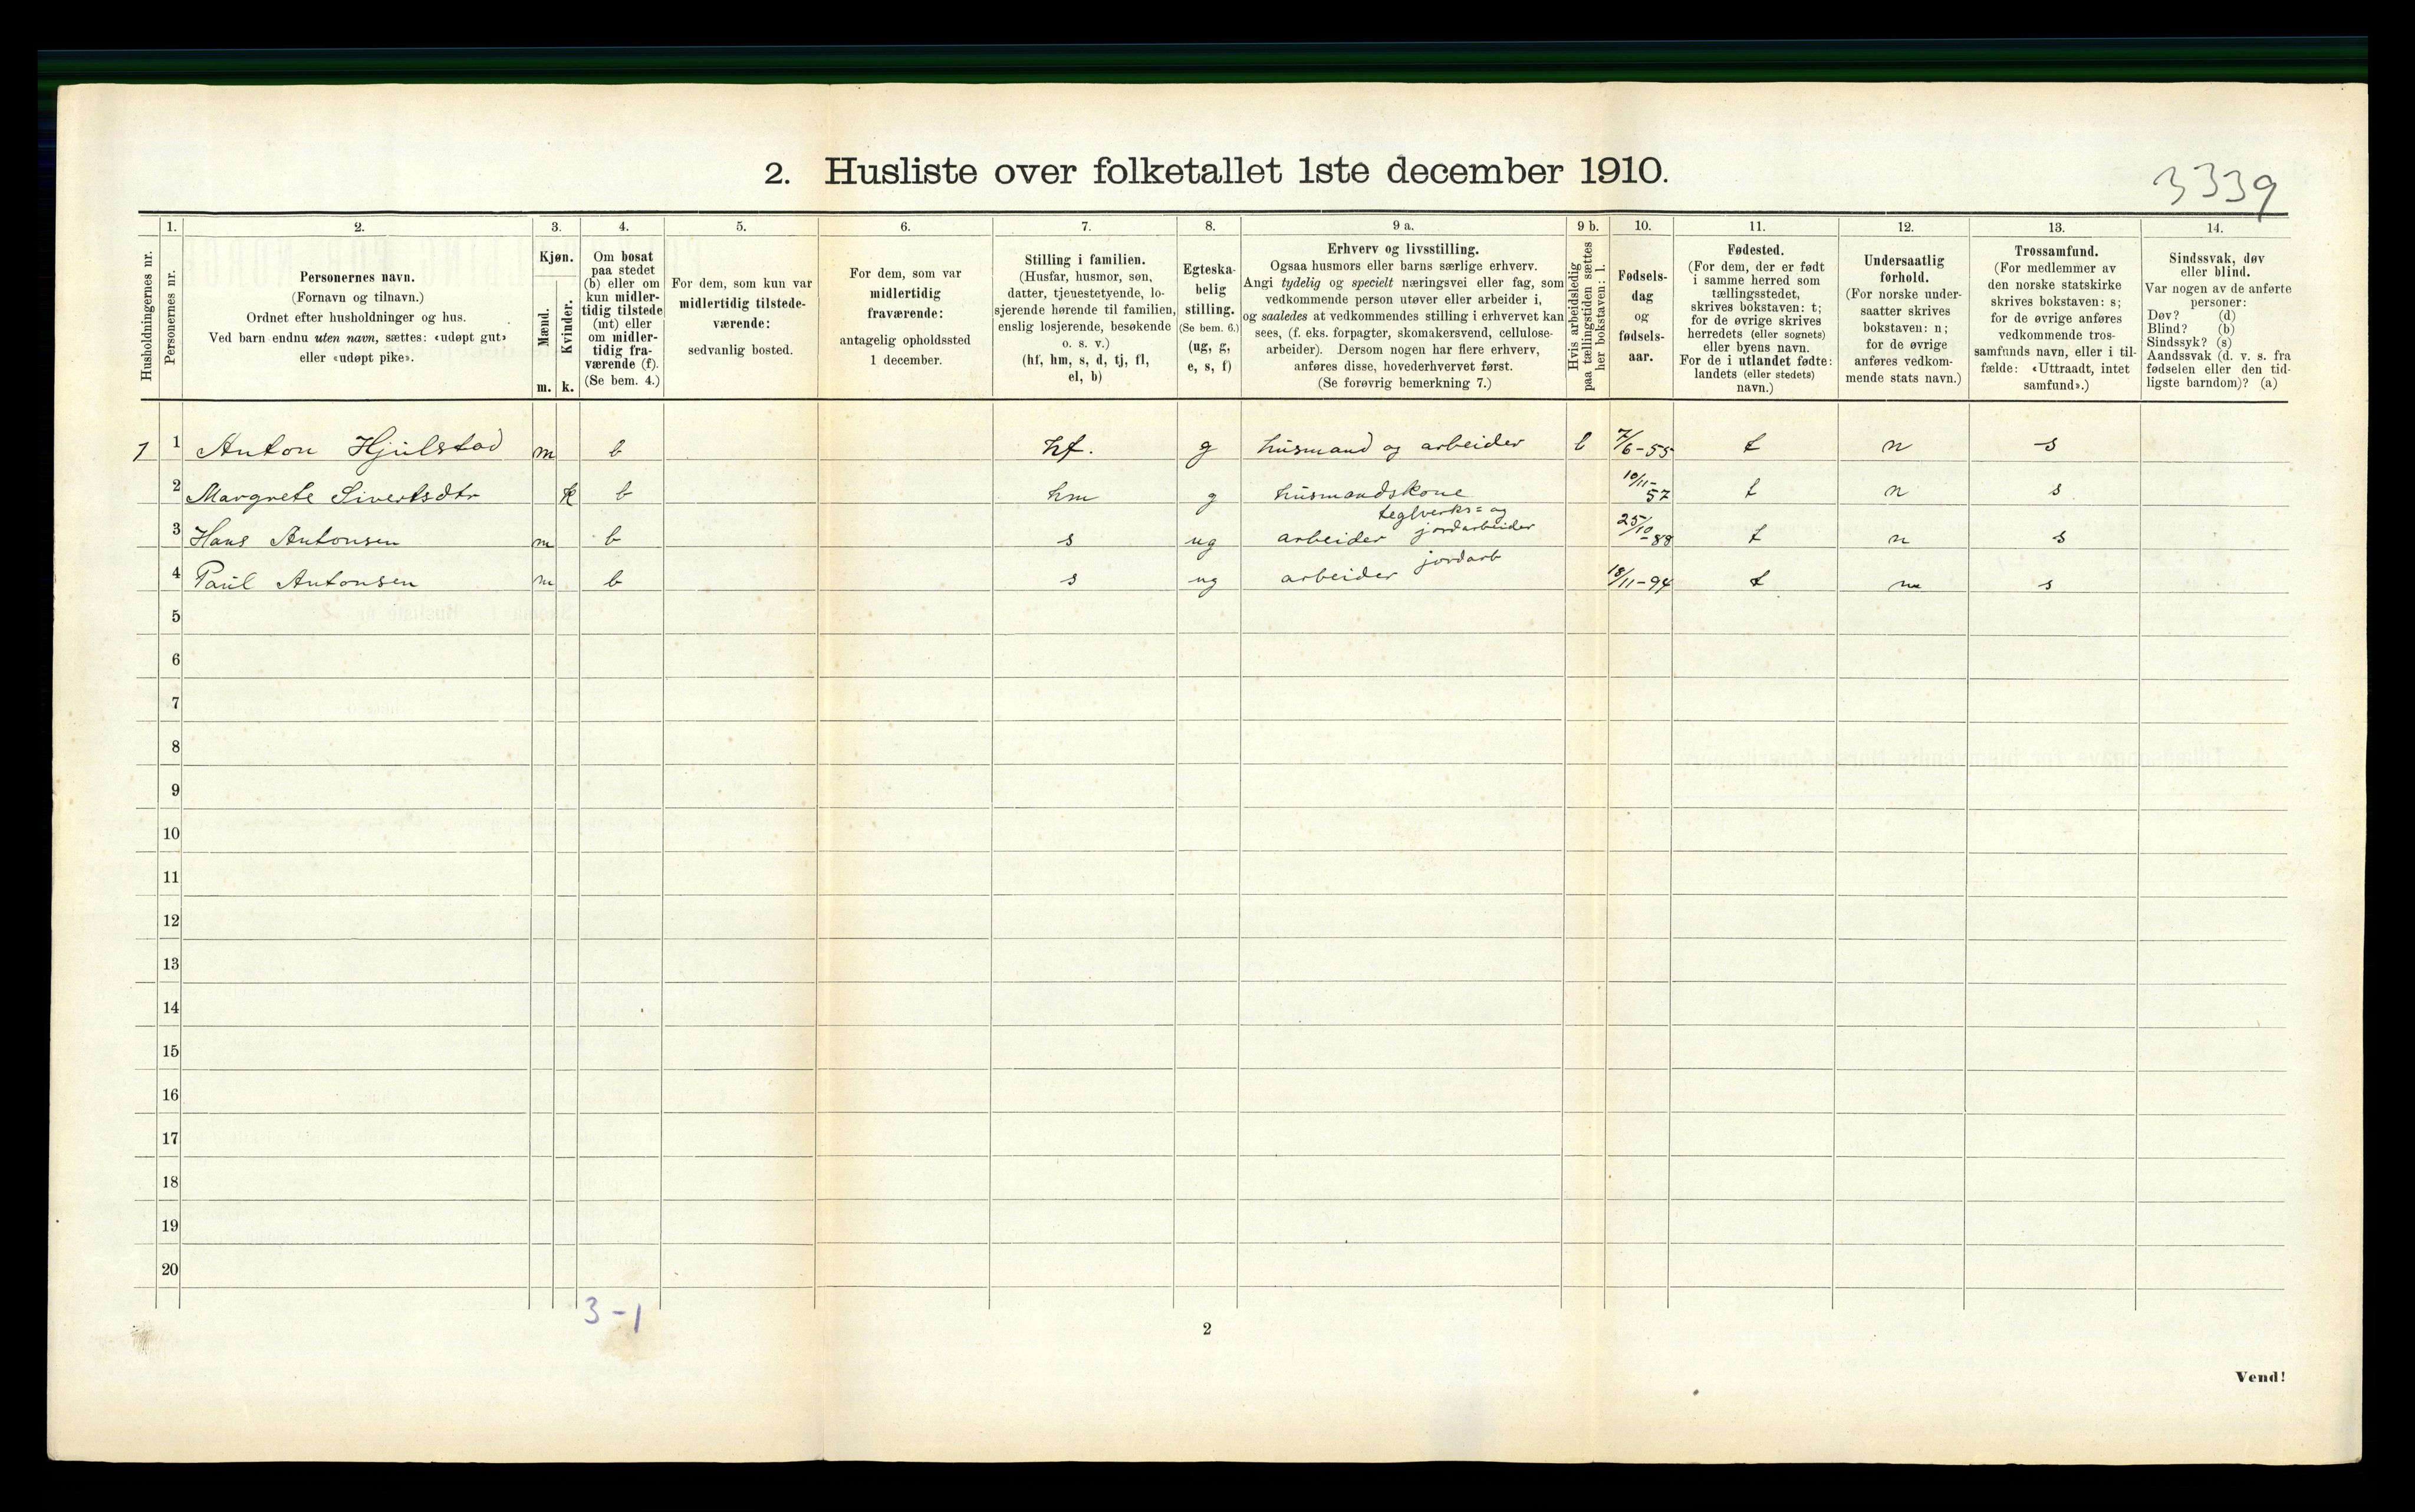 2. Husliste over folketallet 1ste december 1910.
3339
Husholdningernes nr.
1.
Personernes nr.
2.
Personernes navn.
(Fornavn og tilnavn.)
Ordnet efter husholdninger og hus.
Ved barn endnu uten navn, sættes: «udøpt gut»
eller «udøpt pike».
3.
Kjøn.
Mænd.
Kvinder.
m. k.
4.
Om bosat
paa stedet
(b) eller om
kun midler-
tidig tilstede
(mt) eller
om midler-
tidig fra-
værende (f).
(Se bem. 4.)
5.
For dem, som kun var
midlertidig tilstede-
værende:
sedvanlig bosted.
6.
For dem, som var
midlertidig
fraværende:
antagelig opholdssted
1 december.
7.
Stilling i familien.
(Husfar, husmor, søn,
datter, tjenestetyende, lo-
sjerende hørende til familien,
enslig losjerende, besøkende
o. s. v.)
(hf, hm, s, d, tj, fl,
el, b)
8.
Egteska-
belig
stilling.
(Se bem. 6.)
(ug, g,
e, s, f)
9 a.
Erhverv og livsstilling.
Ogsaa husmors eller barns særlige erhverv.
Angi tydelig og specielt næringsvei eller fag, som
vedkommende person utøver eller arbeider i,
og saaledes at vedkommendes stilling i erhvervet kan
sees, (f. eks. forpagter, skomakersvend, cellulose-
arbeider). Dersom nogen har flere erhverv,
anføres disse, hovederhvervet først.
(Se forøvrig bemerkning 7.)
9 b.
Hvis arbeidsledig
paa tællingstiden sættes
her bokstaven: l.
10.
Fødsels-
dag
og
fødsels-
aar.
11.
Fødested.
(For dem, der er født
i samme herred som
tællingsstedet,
skrives bokstaven: t;
for de øvrige skrives
herredets (eller sognets)
eller byens navn.
For de i utlandet fødte:
landets (eller stedets)
navn.)
12.
Undersaatlig
forhold.
(For norske under-
saatter skrives
bokstaven: n;
for de øvrige
anføres vedkom-
mende stats navn.)
13.
Trossamfund.
(For medlemmer av
den norske statskirke
skrives bokstaven: s;
for de øvrige anføres
vedkommende tros-
samfunds navn, eller i til-
fælde: «Uttraadt, intet
samfund».)
14.
Sindssvak, døv
eller blind.
Var nogen av de anførte
personer:
Døv? (d)
Blind? (b)
Sindssyk? (s)
Aandssvak (d. v. s. fra
fødselen eller den tid-
ligste barndom)? (a)
1 1 Anton Hjulstad m b hf. g husmand og arbeider l 7/6-55 t n s
2 Margrete Sivertsdtr k b hm g husmandskone 10/11-57 t n s
3 Hans Antonsen m b s ug arbeider teglverks= og jordarbeider 25/10-88 t n s
4 Paul Antonsen m b s ug arbeider jordarb 18/11-94 t n s
5
6
7
8
9
10
11
12
13
14
15
16
17
18
19
20
3-1
2
Vend!